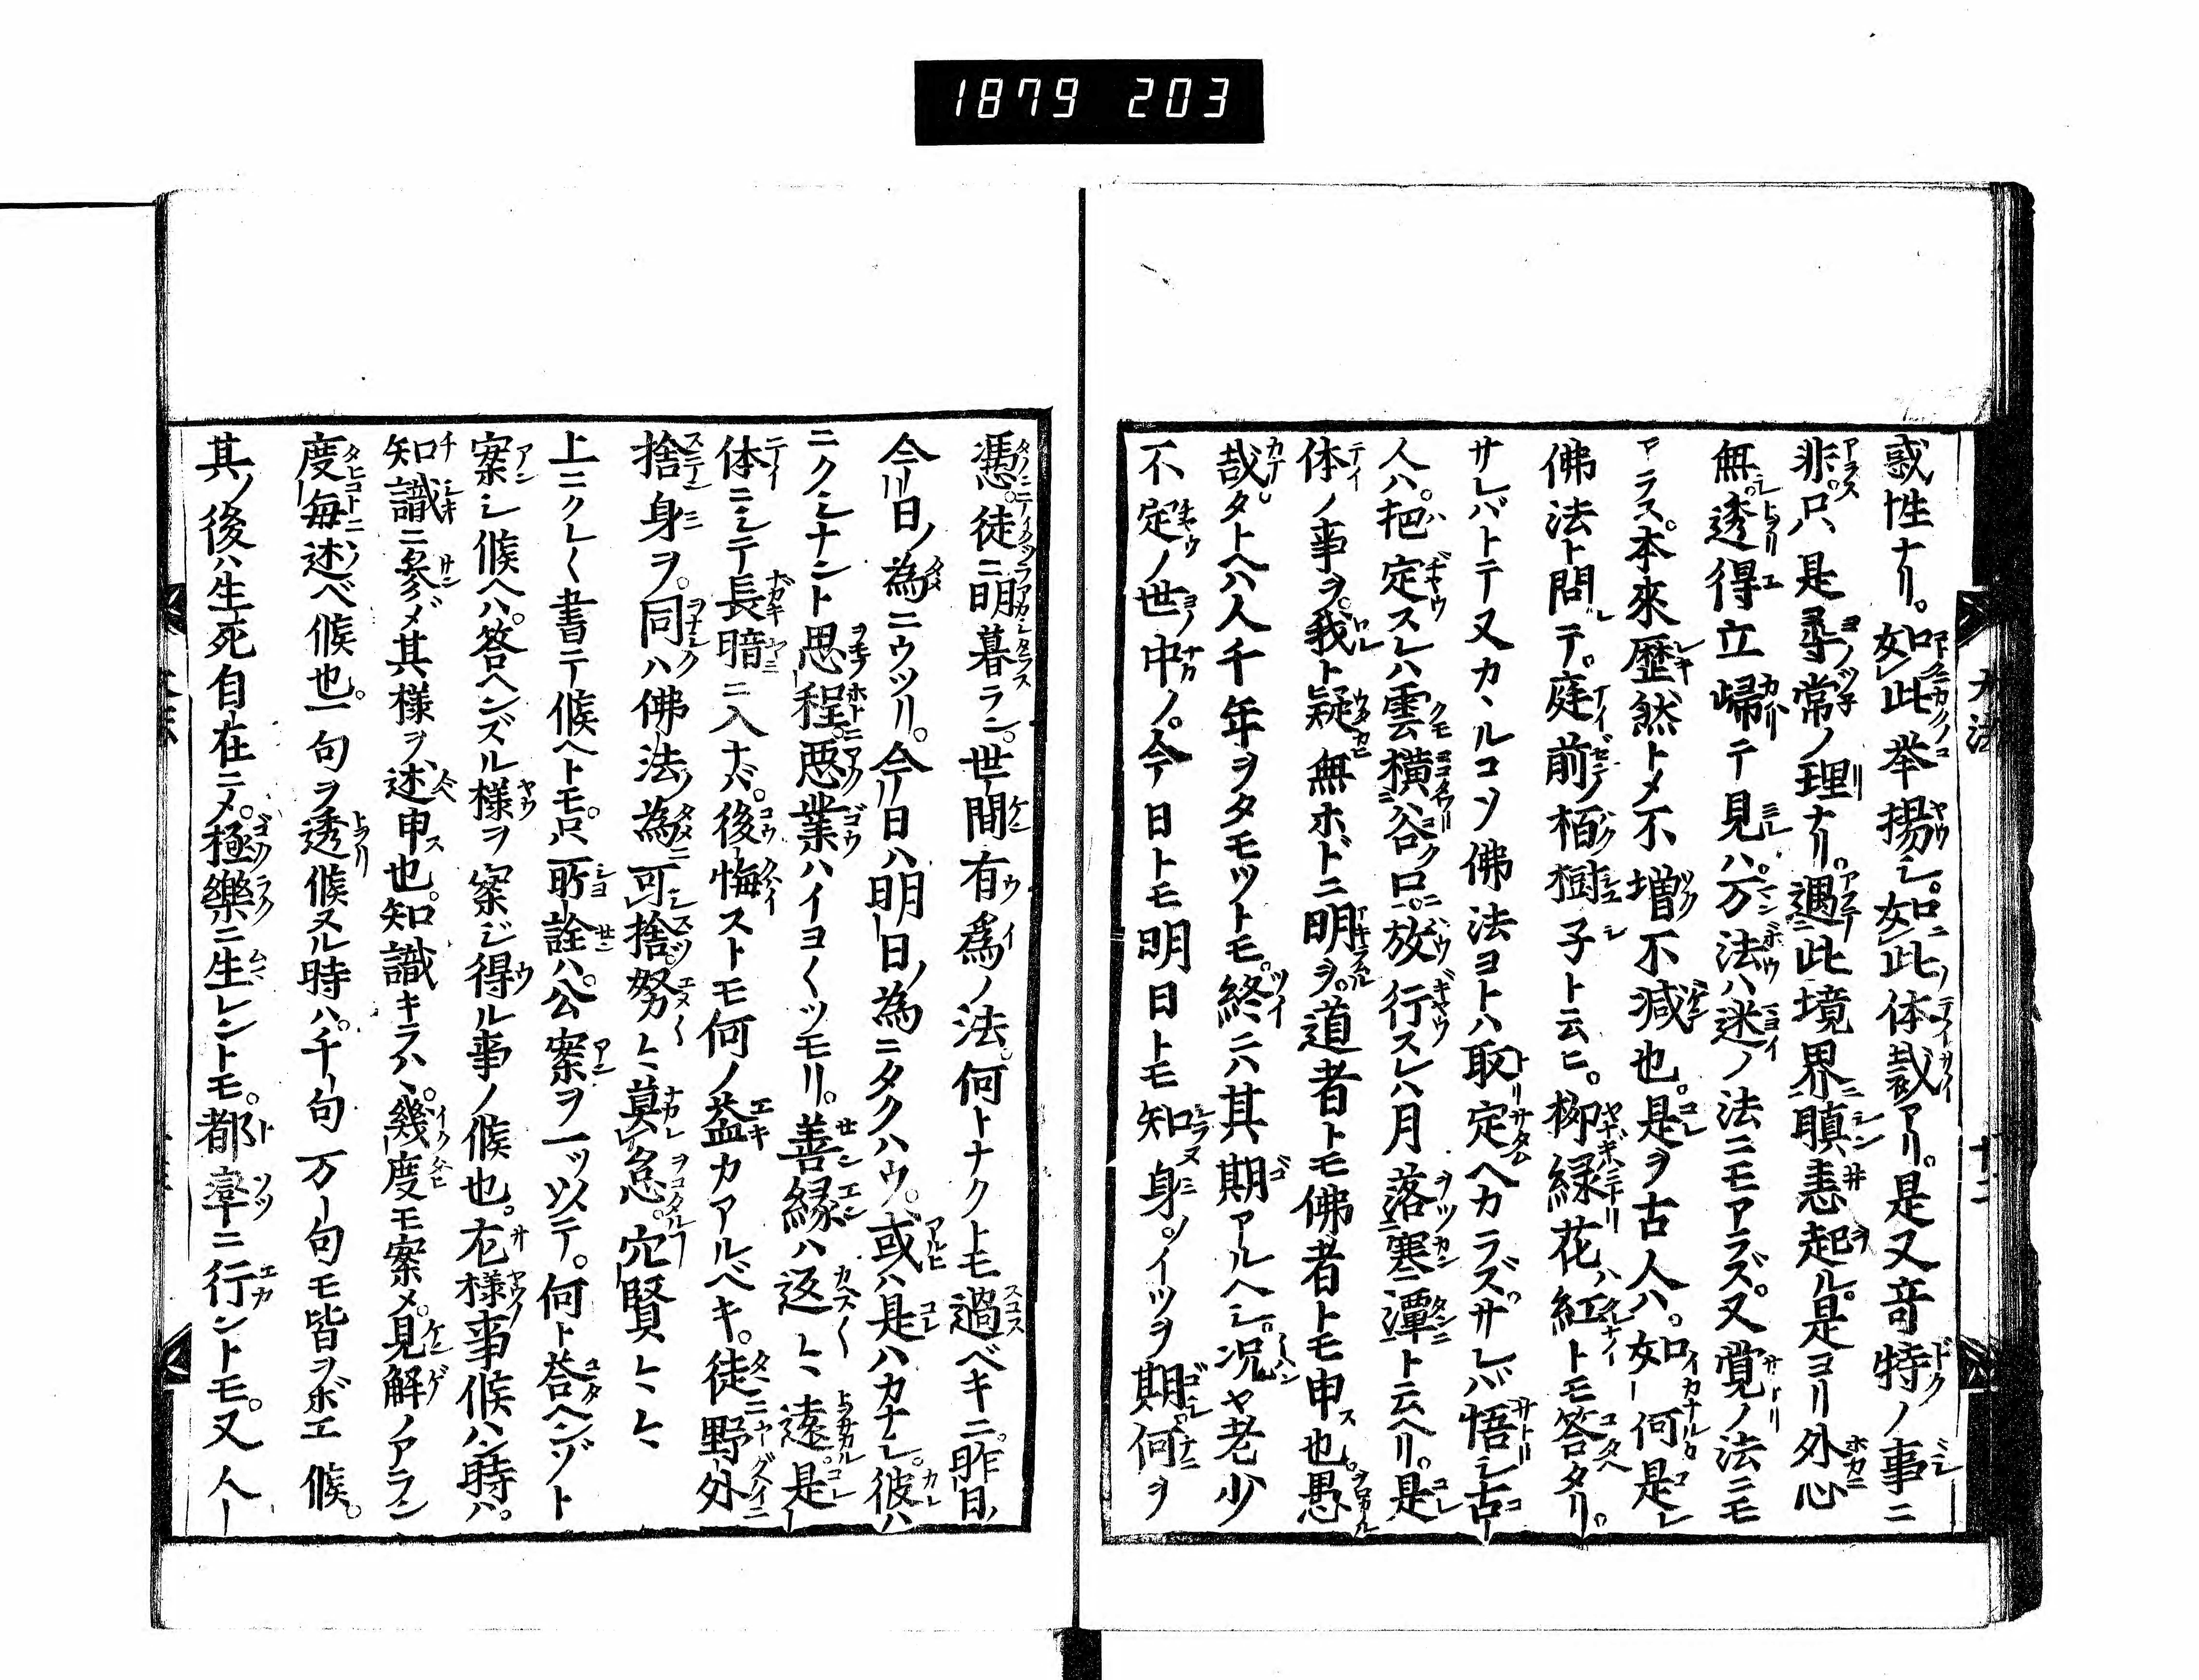 1879 203
惑性ナリ。如此挙揚シ。如此ノ体裁アリ。是又竒特ノ事ニ
非。只是尋常ノ理ナリ。遇此境界瞋恚起ル。是ヨリ外心
無。透得立帰テ見ハ。万法ハ迷ノ法ニモアラズ。又覚ノ法ニモ
アラス。本來歷然トメ不増不減也。是ヲ古人ハ。如何是レ
佛法ト問テ。庭前ノ栢樹子ト云ヒ。柳緑花ハ紅トモ答タリ。
サレバトテ又カヽルコソ佛法ヨトハ取定ヘカラズ。サレバ悟シ古
人ハ。把定スレハ雲横谷口。放行スレハ月落寒潭ト云ヘリ。是
体ノ事ヲ。我ト疑無ホドニ明ヲ。道者トモ佛者トモ申也。愚
哉。タトヘハ人千年ヲタモツトモ。終ニハ其期アルヘシ。况ヤ老少
不定ノ世ノ中ノ。今日トモ明日トモ知身ノイツヲ期。何ヲ
憑。徒ニ明暮ラン。世間有為ノ法。何トナクトモ過ベキニ。昨日ノ
今日ノ為ニウツリ。今日ハ明日ノ為ニタクハウ。或ハ是ハカナシ。彼ハ
ニクシナント思程。悪業ハイヨ〱ツモリ。善縁ハ返〻遠。是
体ニシテ長暗ニ入ナバ。後悔ストモ何ノ益カアルベキ。徒野外
捨身ヲ。同ハ佛法ノ為可捨。努〻莫怠。穴賢〻〻
上ニクレ〱書テ候ヘトモ。只所詮ハ。公案ヲ一ツ以テ。何ト荅ヘンゾト
案シ候ヘハ。答ヘンズル様ヲ案ジ得ル事ノ候也。左様事候ハン時ハ。
知識ニ參ジ其様ヲ述申也。知識キラハヾ。幾度モ案メ。見解ノアラン
度毎ニ述ベ候也。一句ヲ透候ヌル時ハ。千句万句モ皆ヲボエ候。
其ノ後ハ生死自在ニメ。極樂ニ生レントモ。都率ニ行ントモ。又人